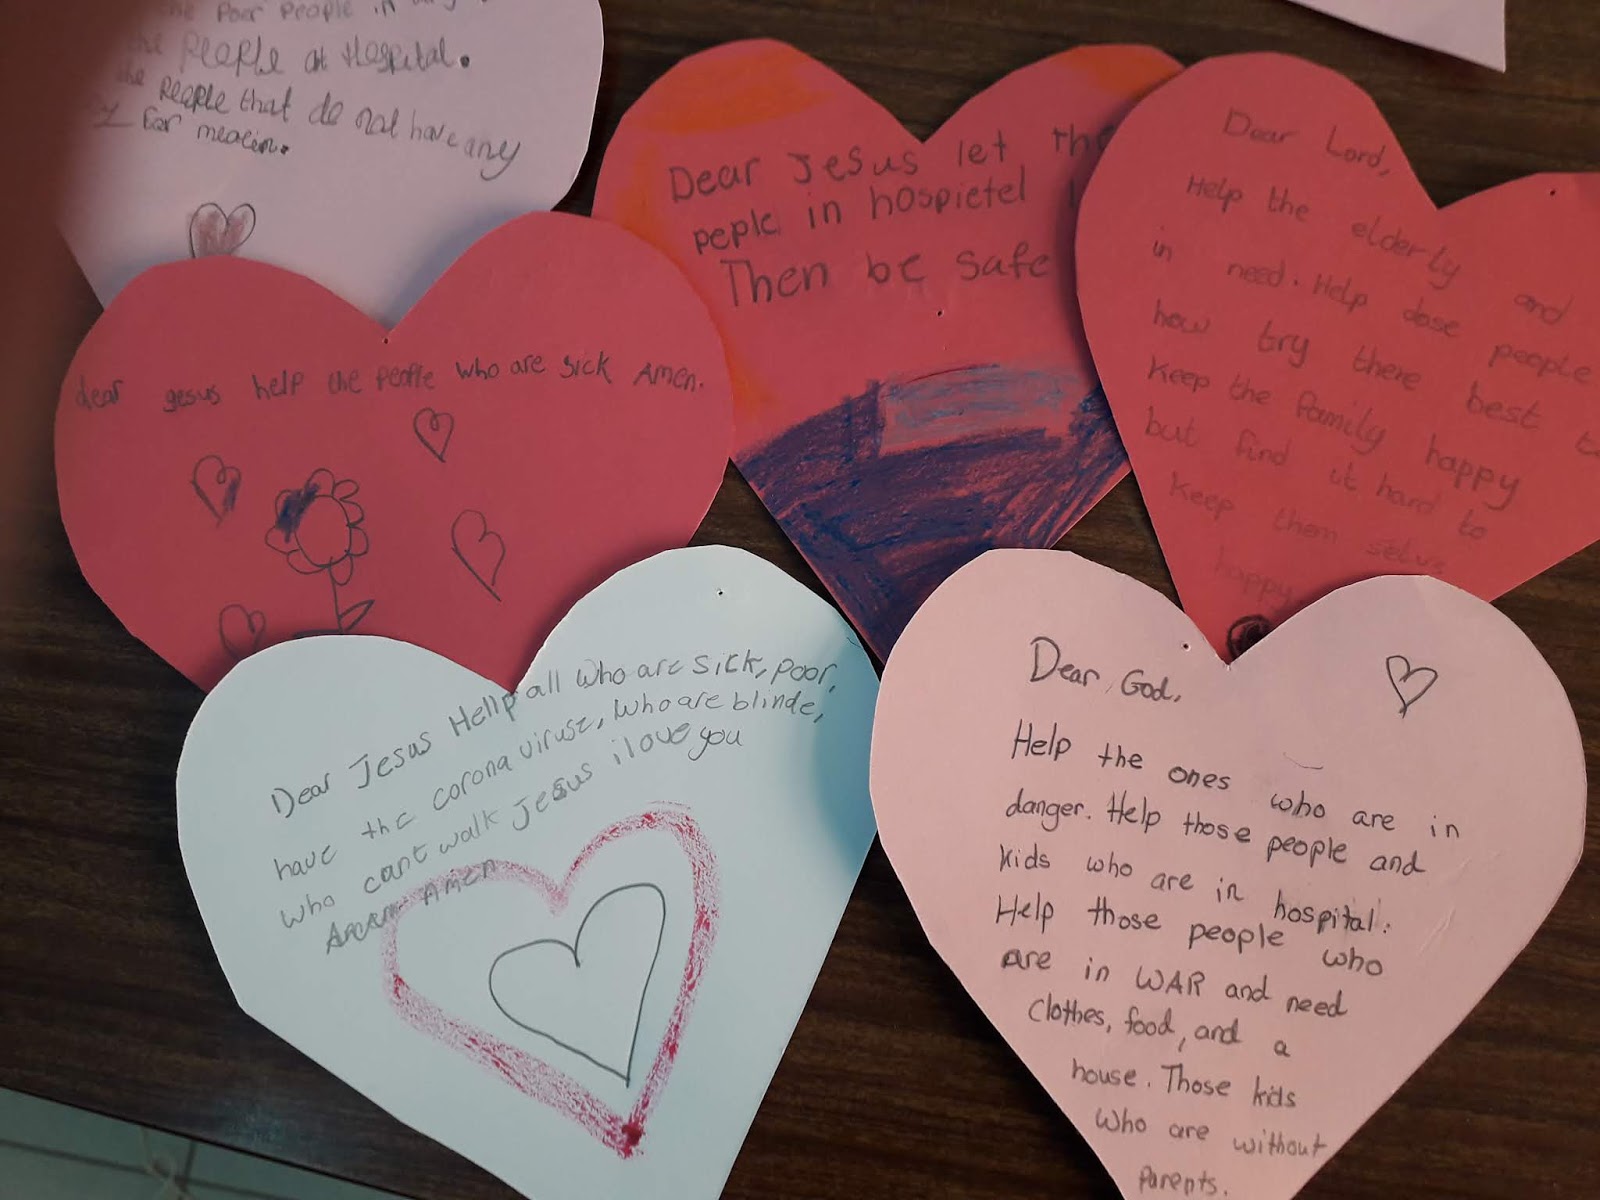 the Poor People in
the People at Hospital.
the People that do not have any
for
Dear Jesus let the
peple in hospietel
Then be safe
Dear Lord,
Help the elderly and
in need. Help dose people
how try there best
Keep the family happy
but find it hard to
Keep them selvs
happy
dear gesus help the people who are sick Amen.
Dear Jesus Hellp all who are sick, poor,
have the corona viruse, who are blinde,
who cant walk Jesus i love you
Amen
Dear God,
Help the ones who are in
danger. Help those people and
kids who are in hospital.
Help those people who
are in WAR and need
Clothes, food, and a
house. Those kids
who are without
parents.